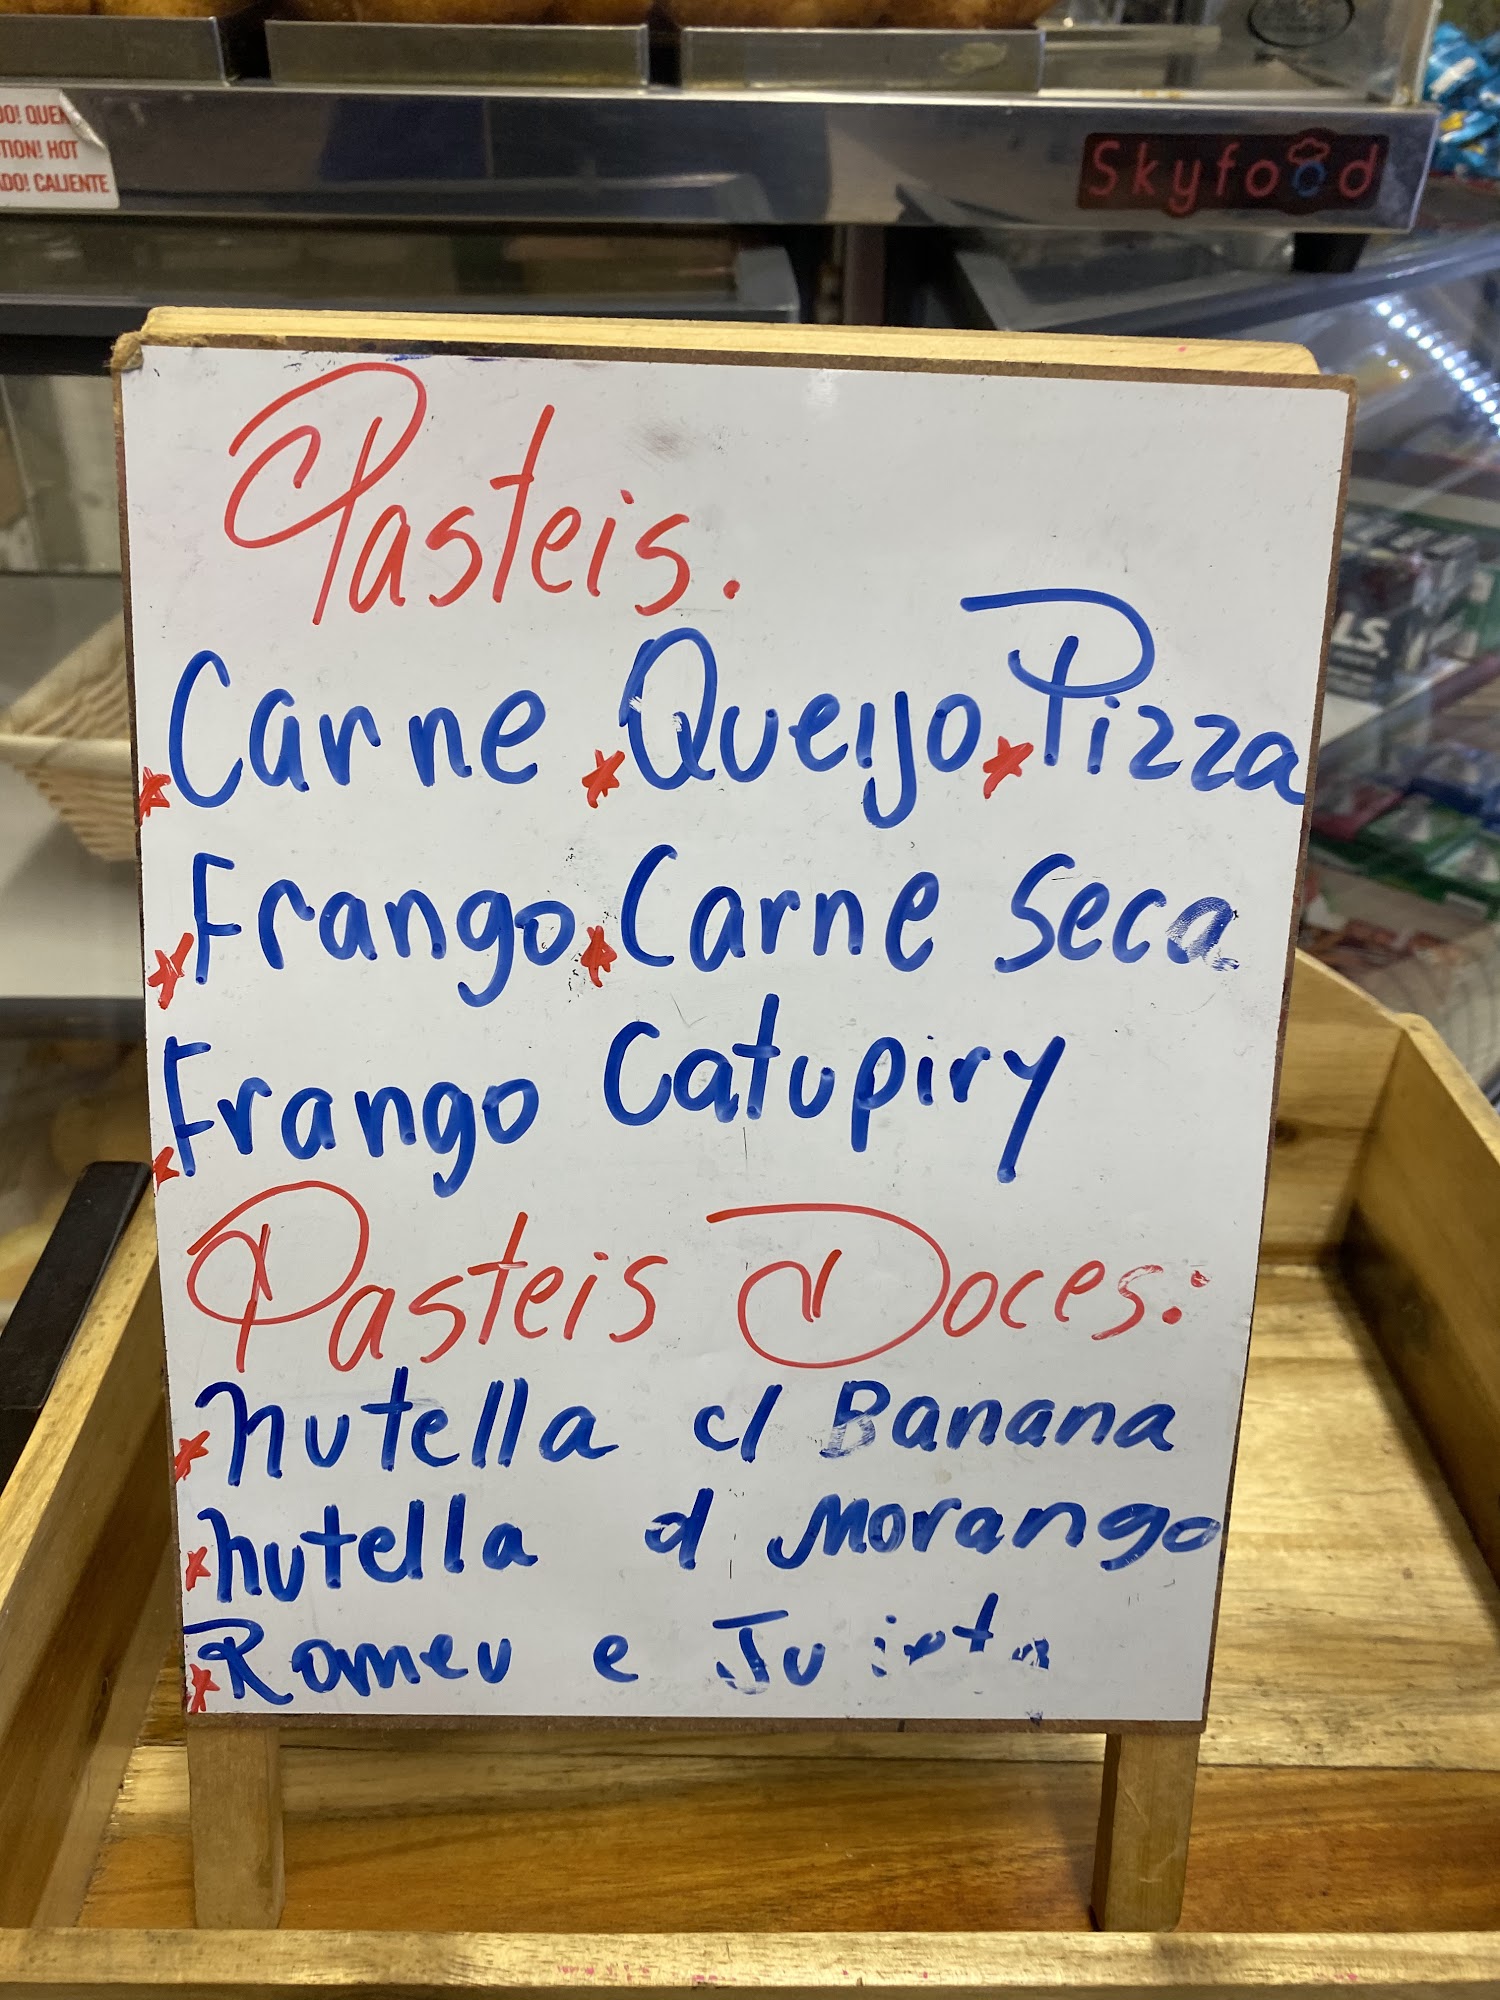 DO! QUEN
TION! HOT
ADO! CALIENTE
Skyfood
Pasteis.
* Carne * Queijo * Pizza
* Frango * Carne Seca
* Frango Catupiry
Pasteis Doces:
* nutella c/ Banana
* nutella c/ Morango
* Romeu e Julieta